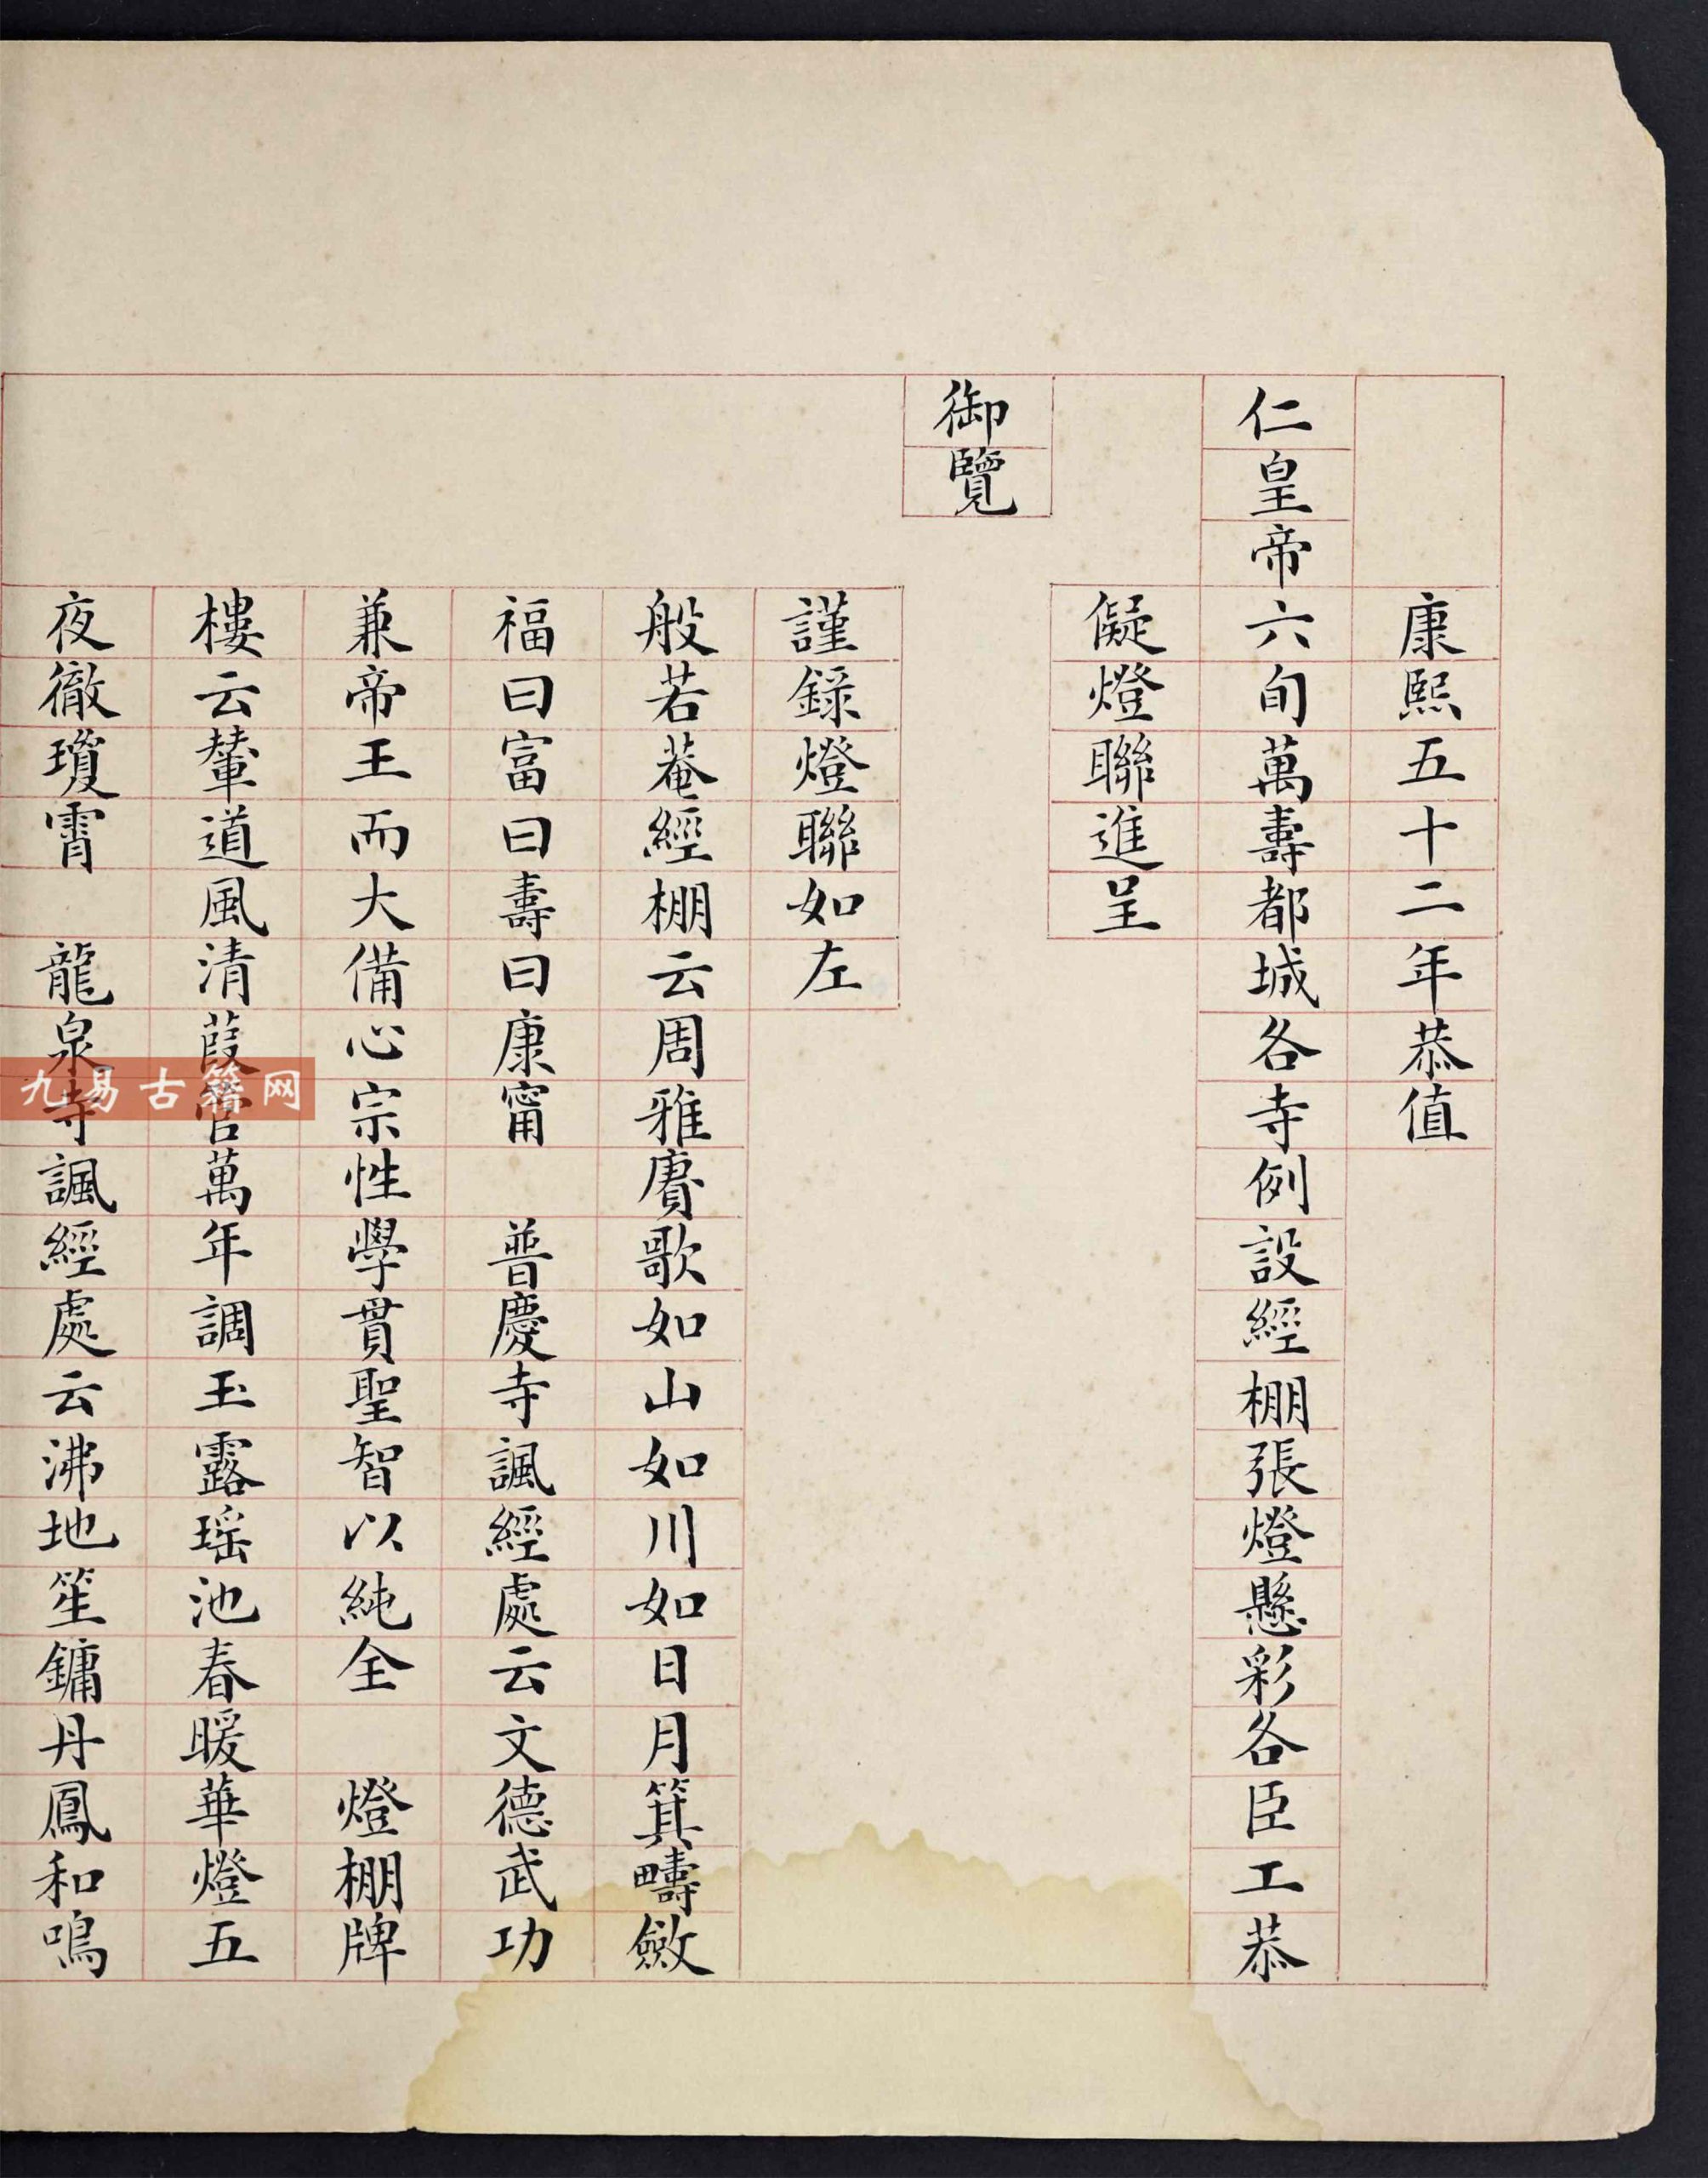 康熙五十二年恭值
仁皇帝六旬萬壽都城各寺例設經棚張燈懸彩各臣工恭
儗燈聯進呈
御覽
謹錄燈聯如左
般若菴經棚云周雅賡歌如山如川如日月箕疇斂
福曰富曰壽曰康甯　普慶寺諷經處云文德武功
兼帝王而大備心宗性學貫聖智以純全　燈棚牌
樓云輦道風清葭管萬年調玉露瑤池春暖華燈五
夜徹瓊霄　龍泉寺諷經處云沸地笙鏞丹鳳和鳴
九易古籍网